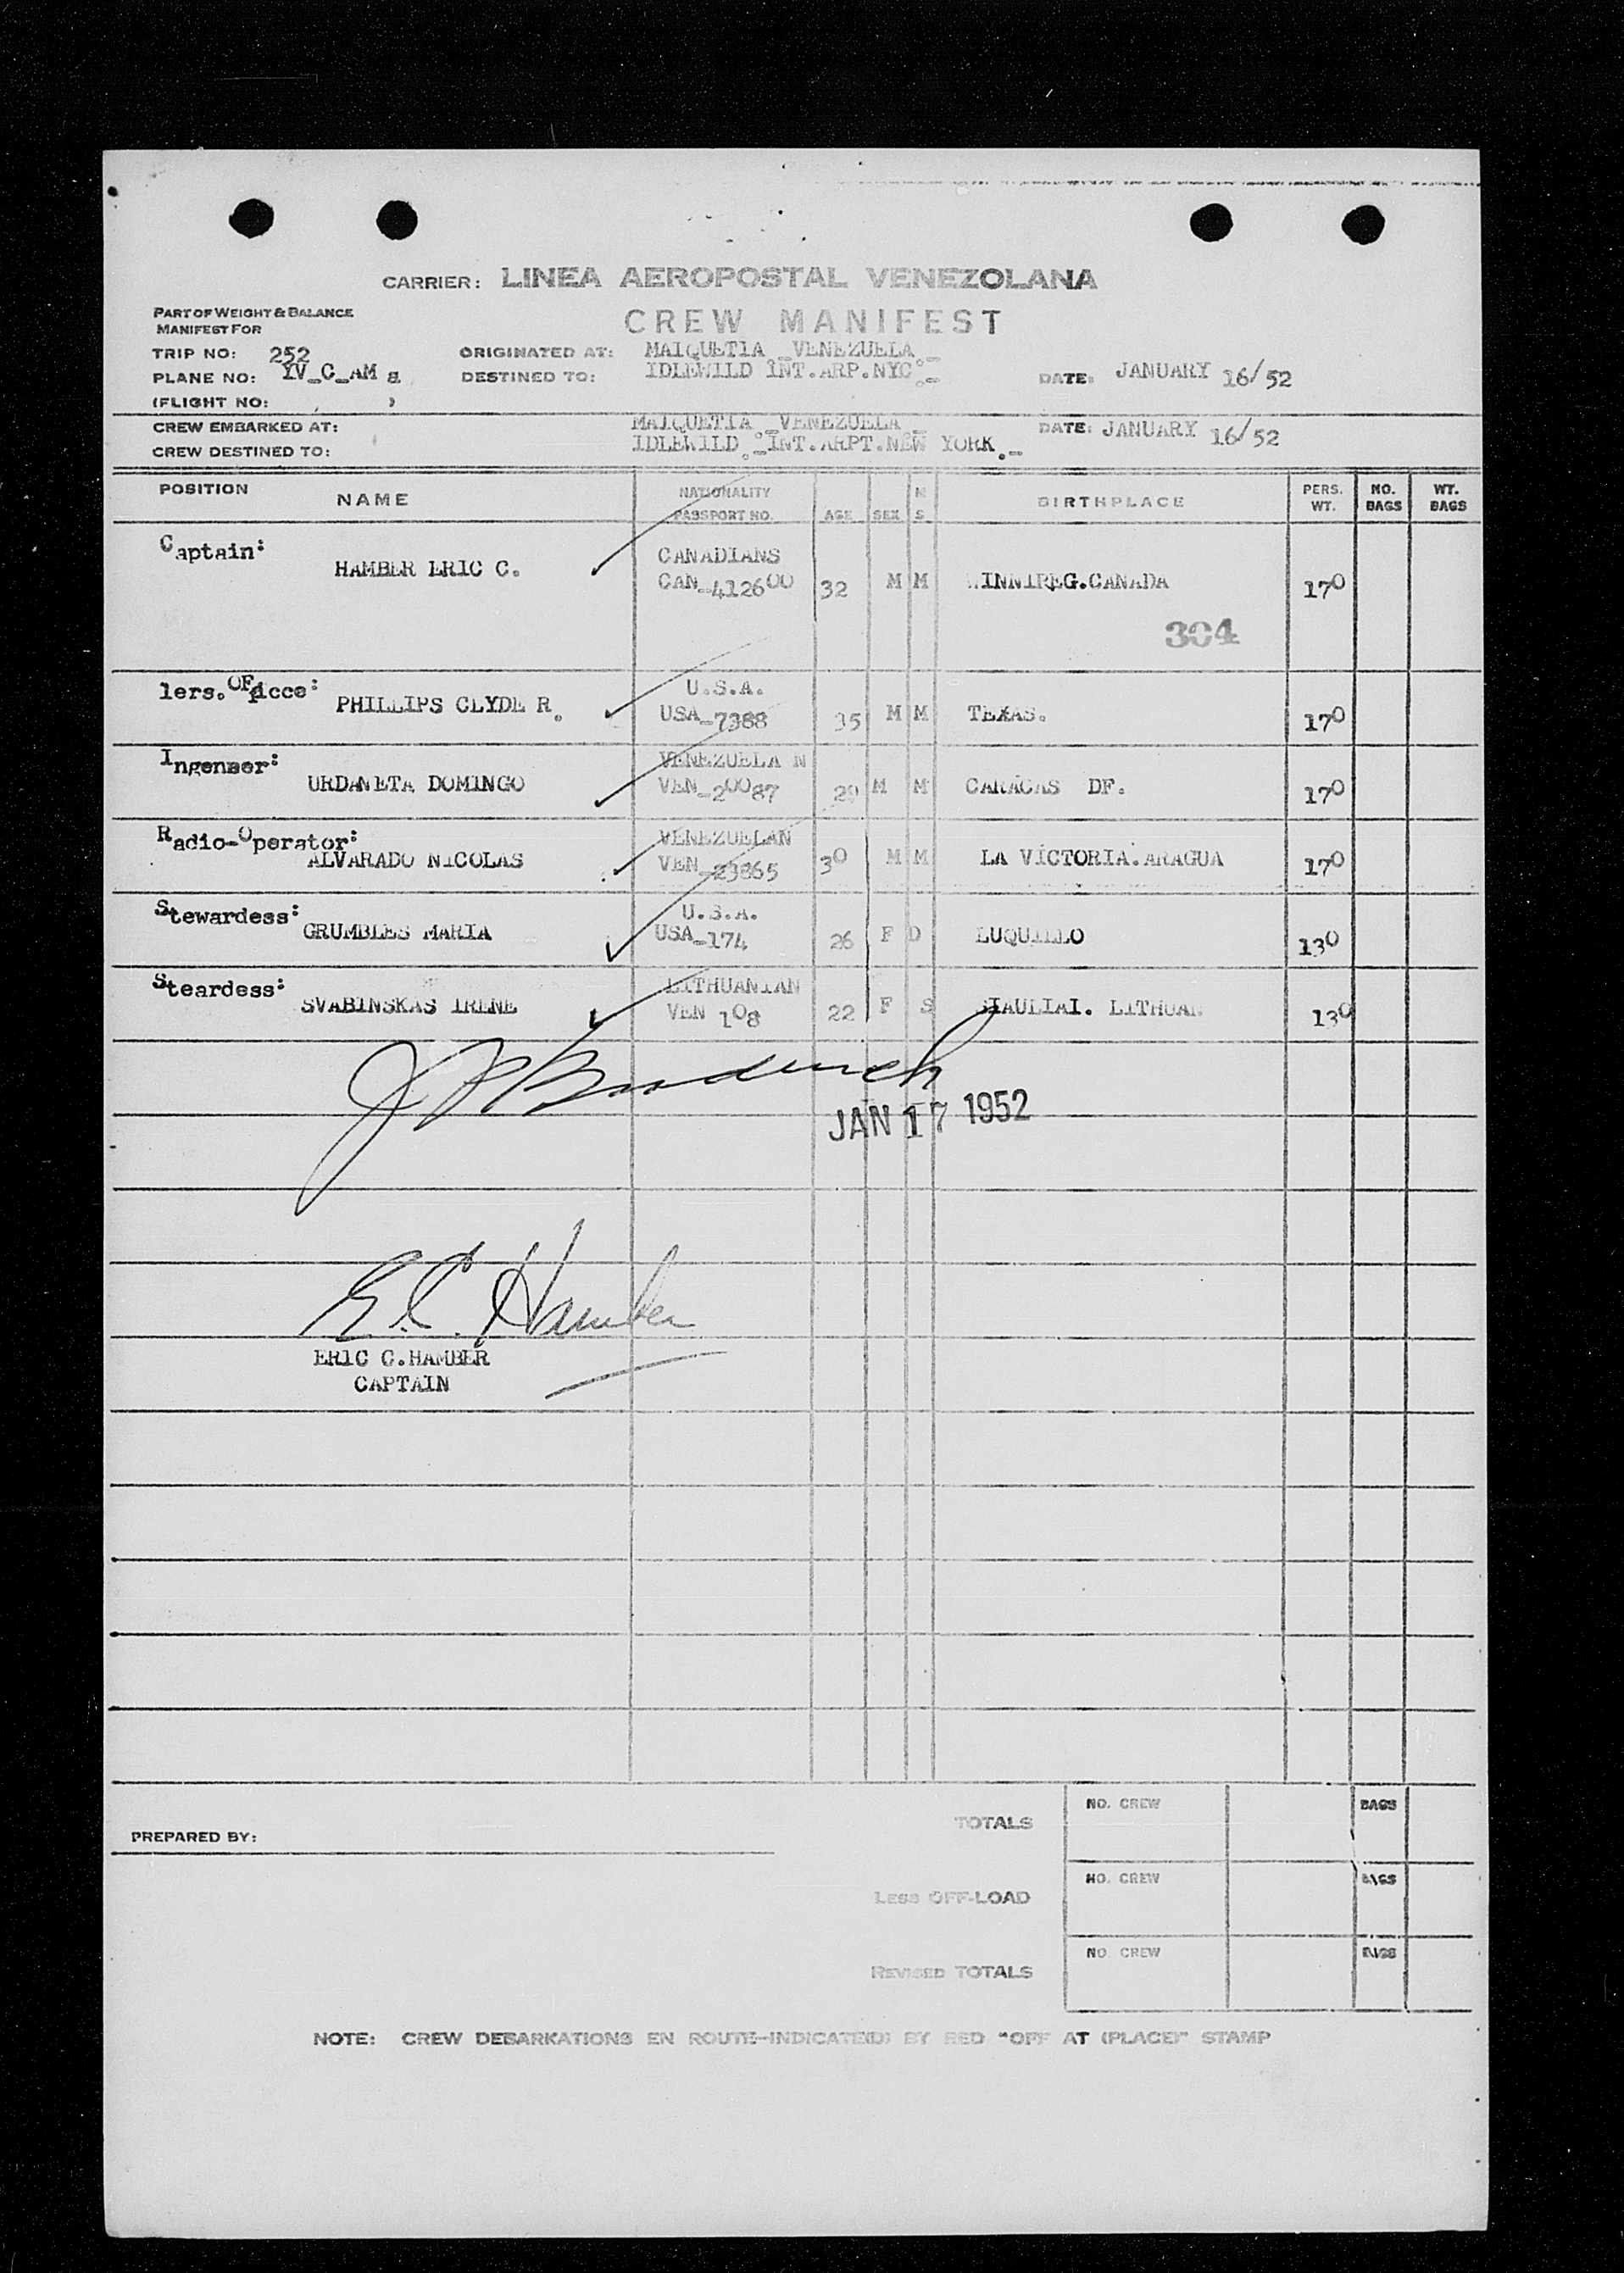 CARRIER: LINEA AEROPOSTAL VENEZOLANA
PART OF WEIGHT & BALANCE
MANIFEST FOR
CREW MANIFEST
TRIP NO: 252
ORIGINATED AT: MAIQUETIA _VENEZUELA_
PLANE NO: YV_C_AM
DESTINED TO: IDLEWILD INT.ARP.NYC
DATE: JANUARY 16/52
(FLIGHT NO: )
CREW EMBARKED AT: MAIQUETIA _VENEZUELA_
DATE: JANUARY 16/52
CREW DESTINED TO: IDLEWILD INT.ARPT.NEW YORK
POSITION NAME NATIONALITY PASSPORT NO. AGE SEX M S BIRTHPLACE PERS. WT. NO. BAGS WT. BAGS
Captain: HAMBER ERIC C. CANADIANS
CAN_412600 32 M M WINNIPEG.CANADA 170
304
1ers.OFficce: PHILLIPS CLYDE R. U.S.A.
USA_7388 35 M M TEXAS. 170
Ingeneer: URDANETA DOMINGO VENEZUELA N
VEN_20087 29 M M CARACAS DF. 170
Radio-Operator: ALVARADO NICOLAS VENEZUELAN
VEN_23865 30 M M LA VICTORIA.ARAGUA 170
Stewardess: GRUMBLES MARIA U.S.A.
USA_174 26 F D LUQUILLO 130
Steardess: SVABINSKAS IRENE LITHUANIAN
VEN 108 22 F S SIAULIAI. LITHUAN 130
JAN 17 1952
E.C. Hamber
ERIC C.HAMBER
CAPTAIN
PREPARED BY:
TOTALS NO. CREW BAGS
LESS OFF-LOAD NO. CREW BAGS
REVISED TOTALS NO. CREW BAGS
NOTE: CREW DEBARKATIONS EN ROUTE-INDICATE(D) BY RED "OFF AT (PLACE)" STAMP